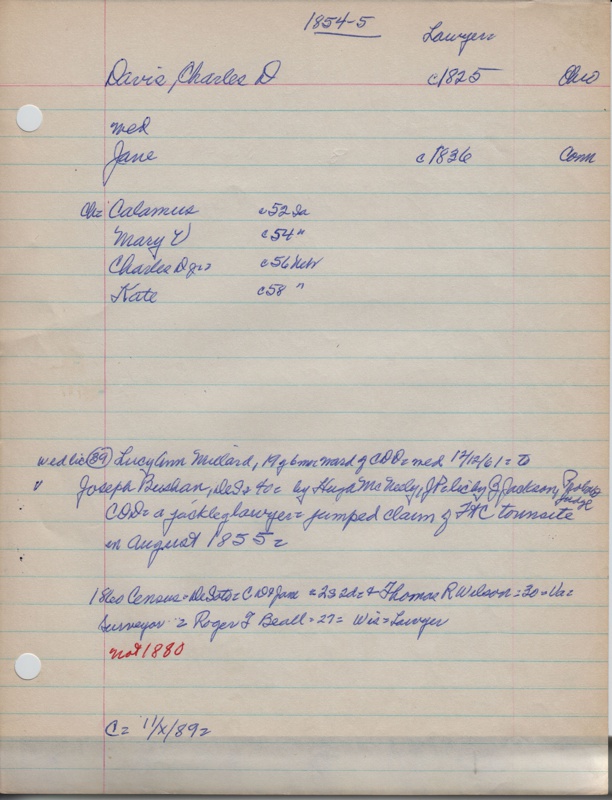 1854-5
Lawyer=
Davis, Charles D c1825 Ohio
med
Jane c1836 Conn
Ch= Calamus c52 Ia
Mary V c54 "
Charles D jr= c56 Nebr
Kate c58 "
wed lic (89) Lucy Ann Millard, 19 y 6 mo= ward of CDD= med 12/12/61= to
v Joseph Bushan, DeSo= by Hugh McNeely, JP lic by B Jackson, Probate Judge
CDD= a jackleg lawyer= jumped claim of FtC townsite
in August 1855=
1860 Census= DeSoto= CD & Jane = & Thomas R Wilson= 30= Va=
Surveyor = Roger T Beall= 27= Wis= Lawyer
not 1880
C= 11/X/89=